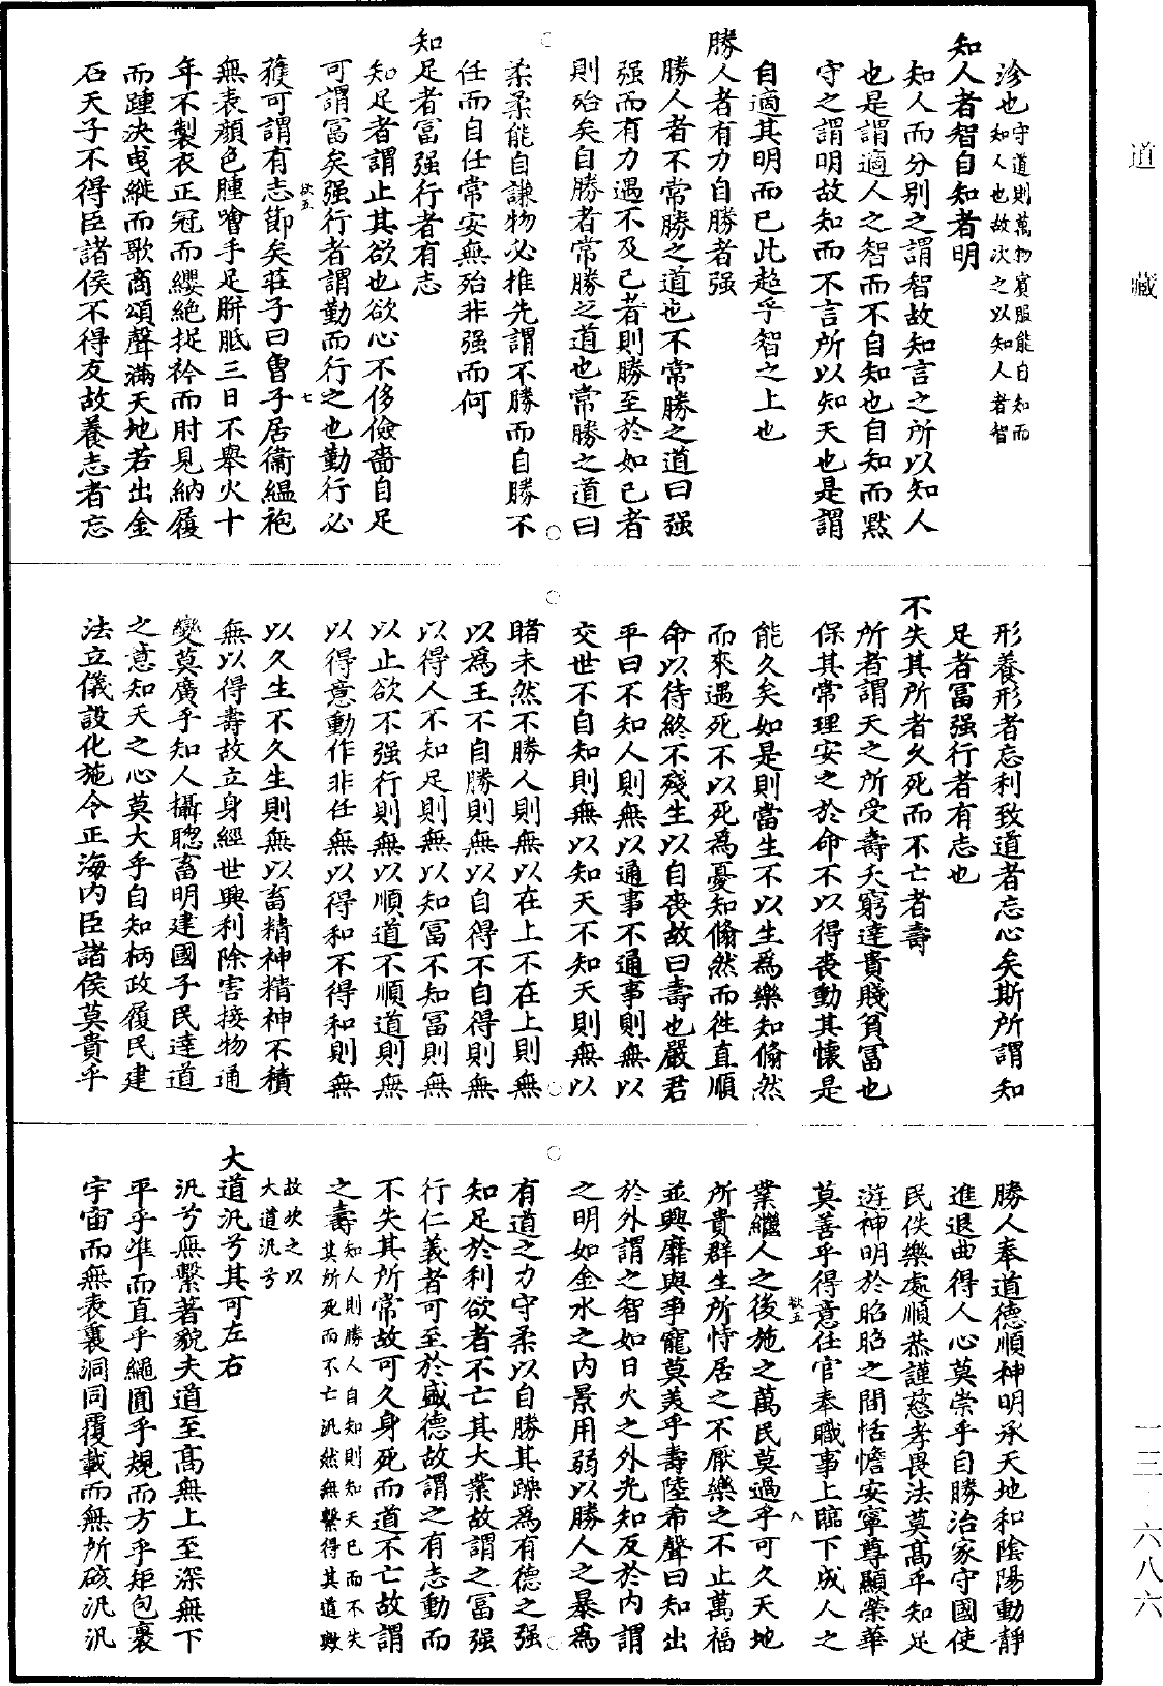 道藏
沴也守道則萬物賓服能自知而
知人也故次之以知人者智
知人者智自知者明
知人而分別之謂智故知言之所以知人
也是謂適人之智而不自知也自知而默
守之謂明故知而不言所以知天也是謂
自適其明而已此超乎智之上也
勝人者有力自勝者强
勝人者不常勝之道也不常勝之道曰强
强而有力遇不及已者則勝至於如已者
則殆矣自勝者常勝之道也常勝之道曰
柔柔能自謙物必推先謂不勝而自勝不
任而自任常安無殆非强而何
知足者冨强行者有志
知足者謂止其欲也欲心不侈儉嗇自足
可謂冨矣强行者謂勤而行之也勤行必
欲五
七
獲可謂有志節矣莊子曰曾子居衞緼袍
無表顔色腫噲手足胼胝三日不舉火十
年不製衣正冠而纓絶捉衿而肘見納履
而踵決曳縰而歌商頌聲滿天地若出金
石天子不得臣諸侯不得友故養志者忘
形養形者忘利致道者忘心矣斯所謂知
足者冨强行者有志也
不失其所者久死而不亡者壽
所者謂天之所受壽夭窮達貴賤貧冨也
保其常理安之於命不以得喪動其懷是
能久矣如是則當生不以生爲樂知翛然
而來遇死不以死爲憂知翛然而徃直順
命以待終不殘生以自喪故曰壽也嚴君
平曰不知人則無以通事不通事則無以
交世不自知則無以知天不知天則無以
睹未然不勝人則無以在上不在上則無
以爲王不自勝則無以自得不自得則無
以得人不知足則無以知冨不知冨則無
以止欲不强行則無以順道不順道則無
以得意動作非任無以得和不得和則無
以久生不久生則無以畜精神精神不積
無以得壽故立身經世興利除害接物通
變莫廣乎知人攝聦畜明建國子民達道
之意知天之心莫大乎自知柄政履民建
法立儀設化施令正海内臣諸侯莫貴乎
勝人奉道德順神明承天地和陰陽動靜
進退曲得人心莫崇乎自勝治家守國使
民佚樂處順恭謹慈孝畏法莫髙乎知足
遊神明於昭昭之間恬憺安寧尊顯榮華
莫善乎得意任官奉職事上臨下成人之
欲五
八
業繼人之後施之萬民莫過乎可久天地
所貴群生所恃居之不厭樂之不止萬福
並興靡與爭寵莫美乎壽陸希聲曰知出
於外謂之智如日火之外光知反於内謂
之明如金水之内景用弱以勝人之暴爲
有道之力守柔以自勝其躁爲有德之强
知足於利欲者不亡其大業故謂之冨强
行仁義者可至於盛德故謂之有志動而
不失其所常故可久身死而道不亡故謂
之壽知人則勝人自知則知天已而不失
其所死而不亡汎然無繫得其道歟
故次之以
大道汎兮
大道汎兮其可左右
汎兮無繫著貌夫道至髙無上至深無下
平乎準而直乎繩圓乎規而方乎矩包裹
宇宙而無表裏洞同覆載而無所硋汎汎
一三六八六